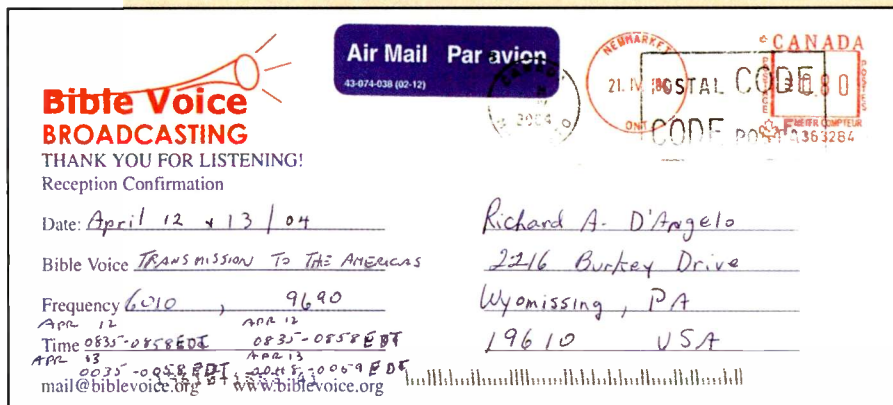 Bible Voice
BROADCASTING
THANK YOU FOR LISTENING!
Reception Confirmation
Date: April 12 & 13/04
Bible Voice TRANSMISSION TO THE AMERICAS
Frequency 6010, 9690
APR 12 APR 12
Time 0835-0858 EDT 0835-0858 EDT
APR 13 APR 13
0035-0058 EDT 0059 EDT
mail@biblevoice.org www.biblevoice.org
Air Mail Par avion
43-074-038 (02-12)
2004
NEWMARKET
21. IV
ONT
POSTAL CODE
CODE
CANADA
POSTAGE POSTES
80
METER COMPTEUR
363284
Richard A. D'Angelo
2216 Burkey Drive
Wyomissing, PA
19610 USA